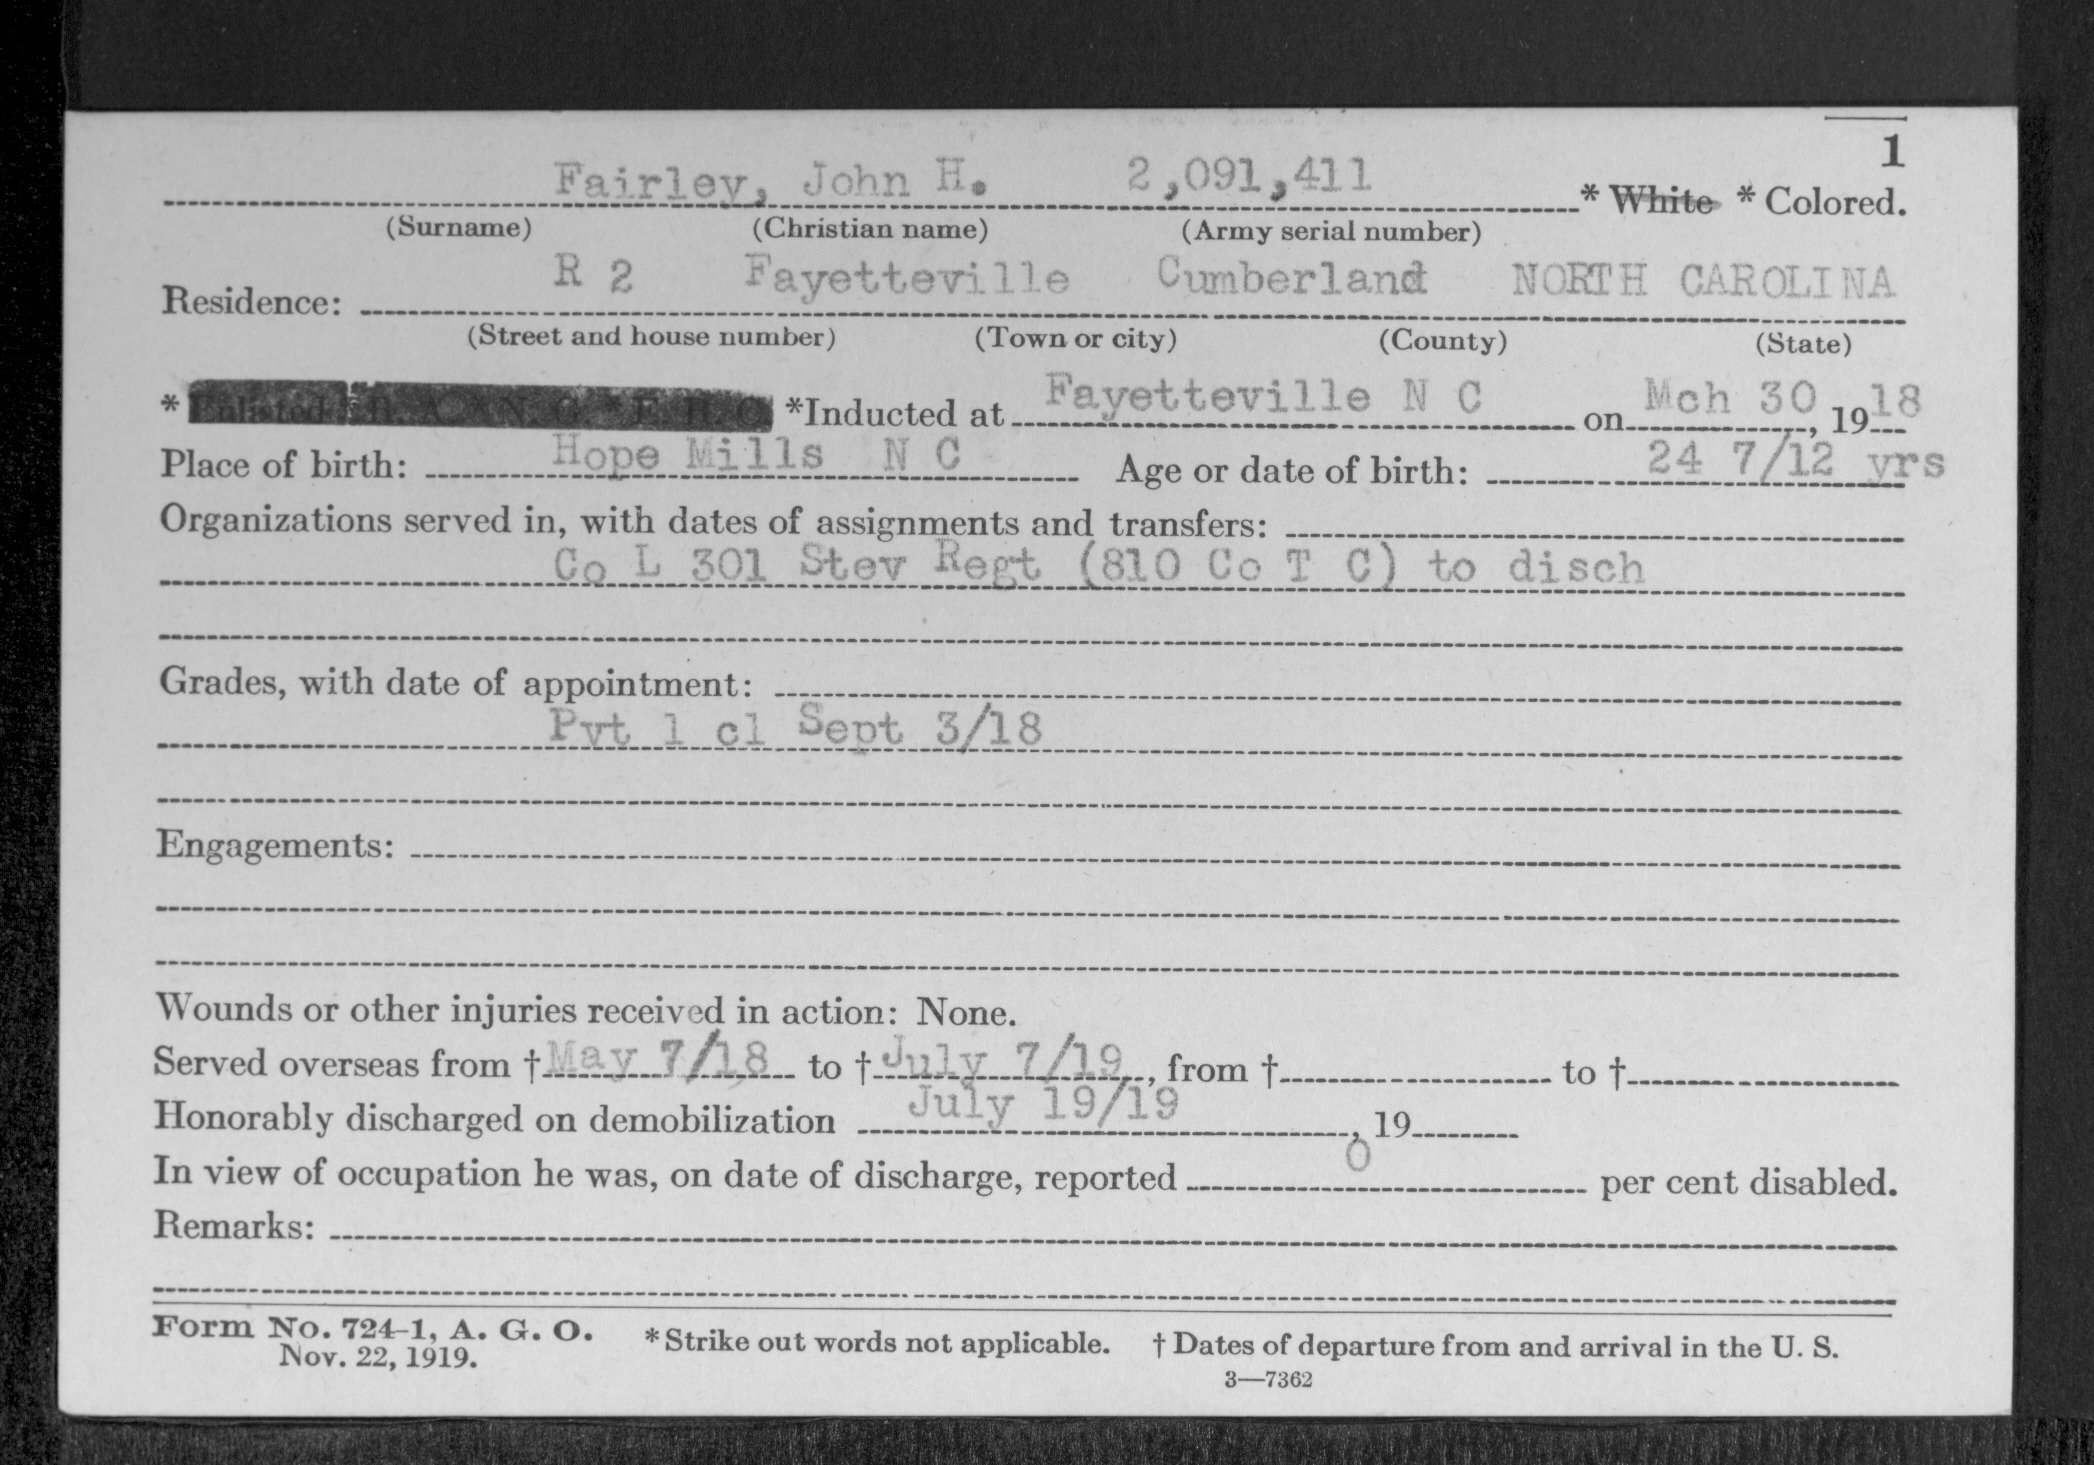 1
Fairley, John H. 2,091,411 * White * Colored.
(Surname) (Christian name) (Army serial number)
Residence: R 2 Fayetteville Cumberland NORTH CAROLINA
(Street and house number) (Town or city) (County) (State)
* Enlisted R. A. N. G. E. R. C. *Inducted at Fayetteville N C on Mch 30, 1918
Place of birth: Hope Mills N C Age or date of birth: 24 7/12 yrs
Organizations served in, with dates of assignments and transfers:
Co L 301 Stev Regt (810 Co T C) to disch
Grades, with date of appointment:
Pvt 1 cl Sept 3/18
Engagements:
Wounds or other injuries received in action: None.
Served overseas from † May 7/18 to † July 7/19, from † to †
Honorably discharged on demobilization July 19/19, 19
In view of occupation he was, on date of discharge, reported 0 per cent disabled.
Remarks:
Form No. 724-1, A. G. O. * Strike out words not applicable. † Dates of departure from and arrival in the U. S.
Nov. 22, 1919.
3—7362